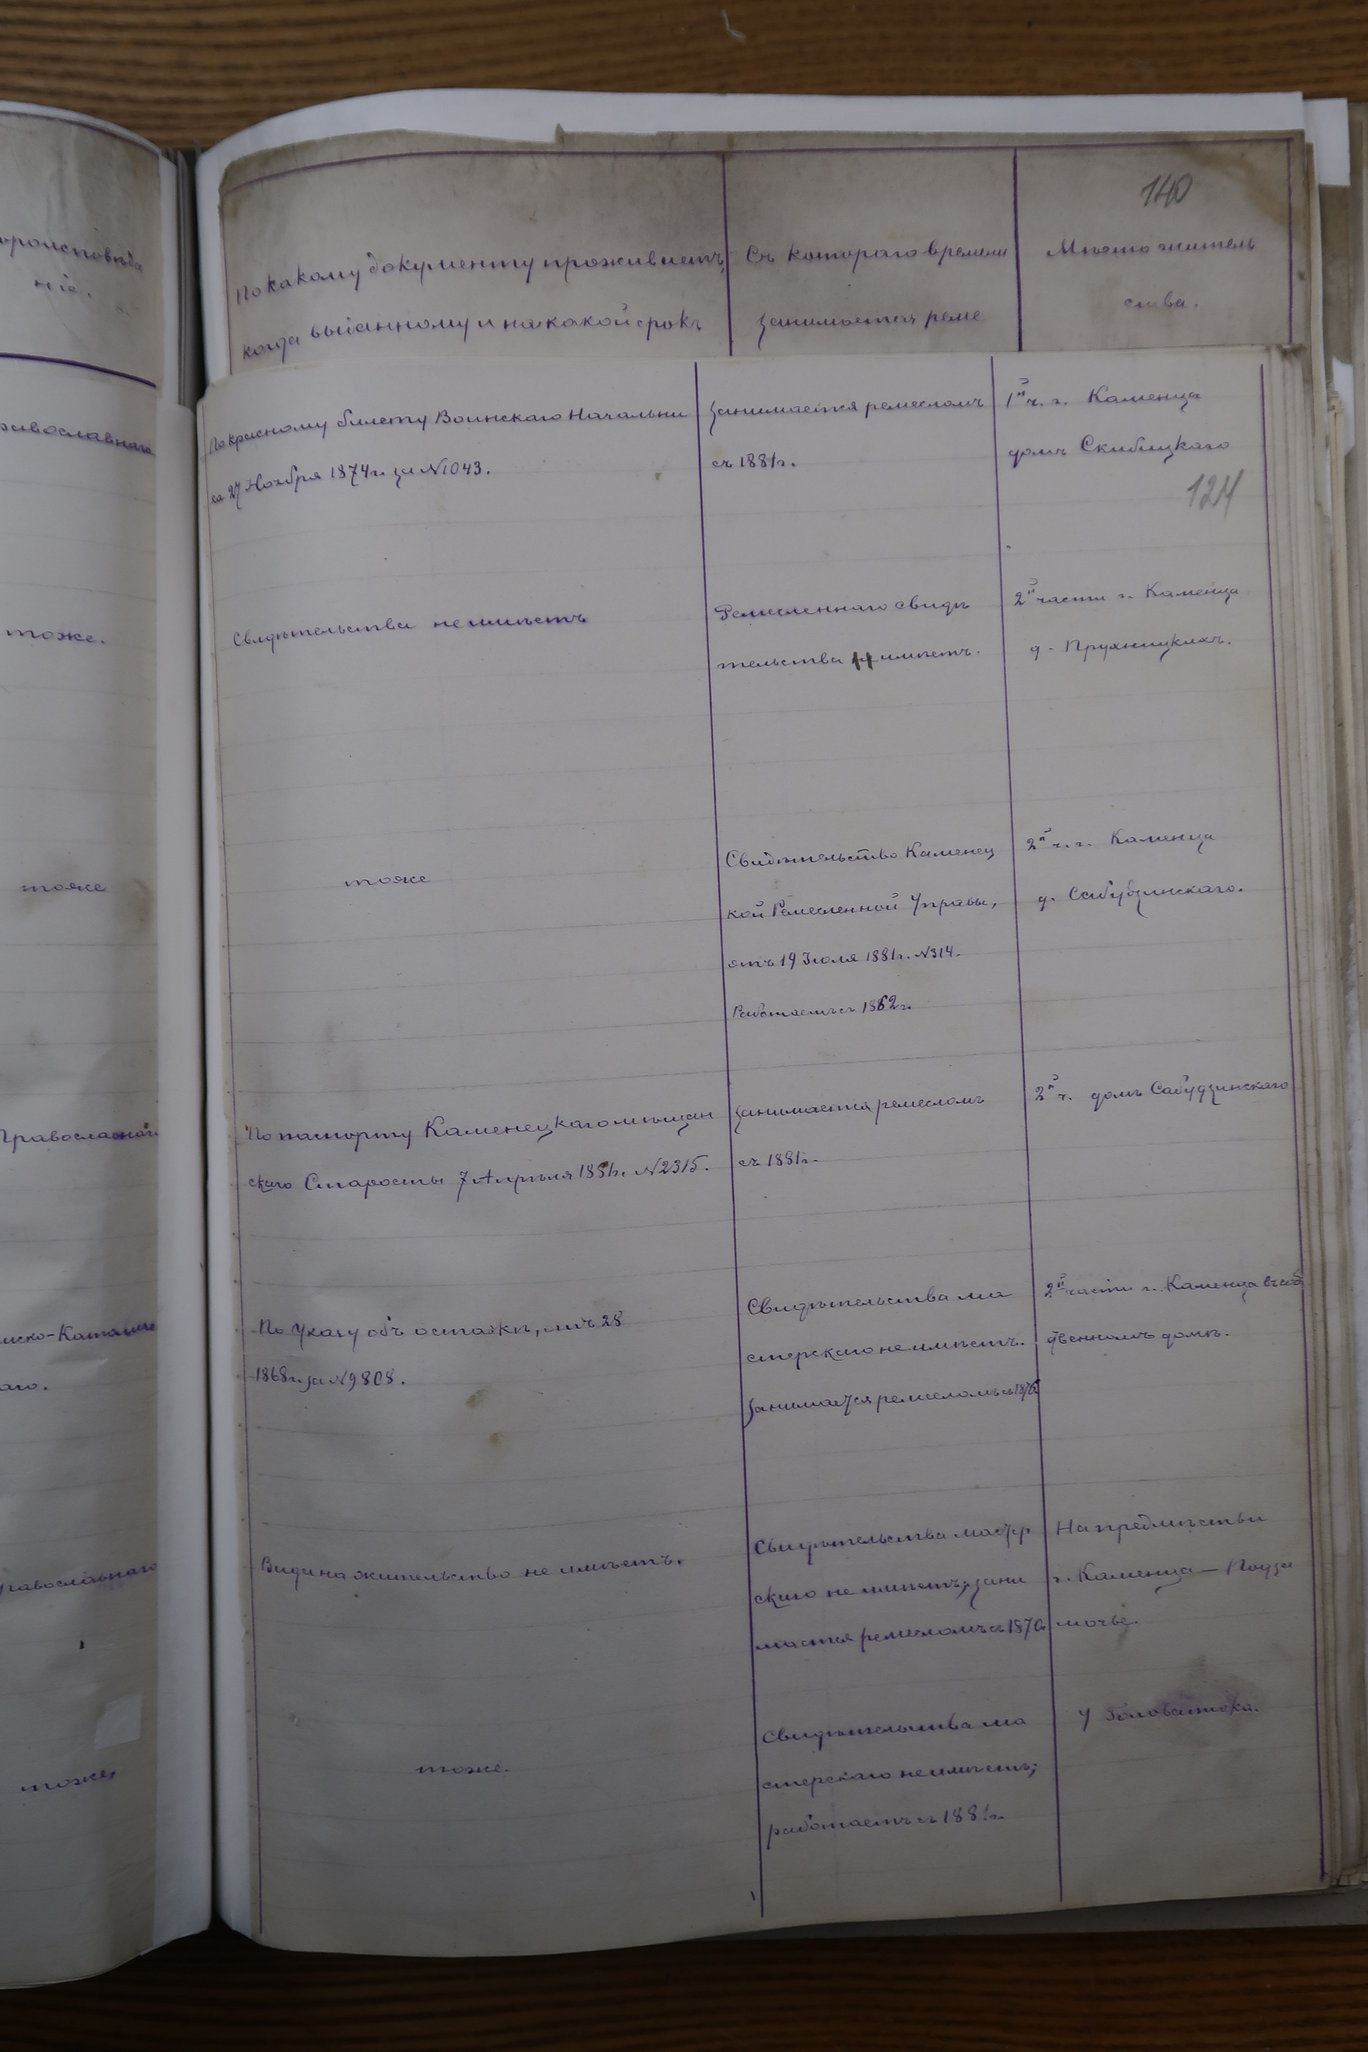 140
вѣроисповѣда
ніе.
По какому документу проживаетъ,
когда выданному и на какой срокъ
Съ котораго времени
занимается реме
Мѣсто житель
ства.
православнаго
По красному билету Воинскаго Начальни
ка 27 Ноября 1874 г. за № 1043.
занимается ремесломъ
съ 1881 г.
1й ч. г. Каменца
домъ Скибицкаго
124
тоже.
Свидѣтельства не имѣетъ
Ремесленнаго свидѣ
тельства не имѣетъ.
2й части г. Каменца
д. Пружницкихъ.
тоже
тоже
Свидѣтельство Каменец
кой Ремесленной Управы,
отъ 19 Іюля 1881 г. № 314.
Работаетъ съ 1862 г.
2й ч. г. Каменца
д. Сабудзинскаго.
Православнаго
По паспорту Каменецкаго мѣщан
скаго Старосты 7 Апрѣля 1881 г. № 2315.
занимается ремесломъ
съ 1881 г.
2й ч. домъ Сабудзинскаго
имско-Католиче
аго.
По Указу объ оставкѣ, отъ 28
1868 г. за № 9808.
Свидѣтельства ма
стерскаго не имѣетъ.
занимается ремесломъ съ 1876
2й части г. Каменца въ соб
ственномъ домѣ.
Православнаго
Вида на жительство не имѣетъ.
Свидѣтельства мастер
скаго не имѣетъ, зани
мается ремесломъ съ 1870
На предмѣстьи
г. Каменца — Подза
мочье.
тоже,
тоже.
Свидѣтельства ма
стерскаго не имѣетъ;
работаетъ съ 1881 г.
У Головатюка.